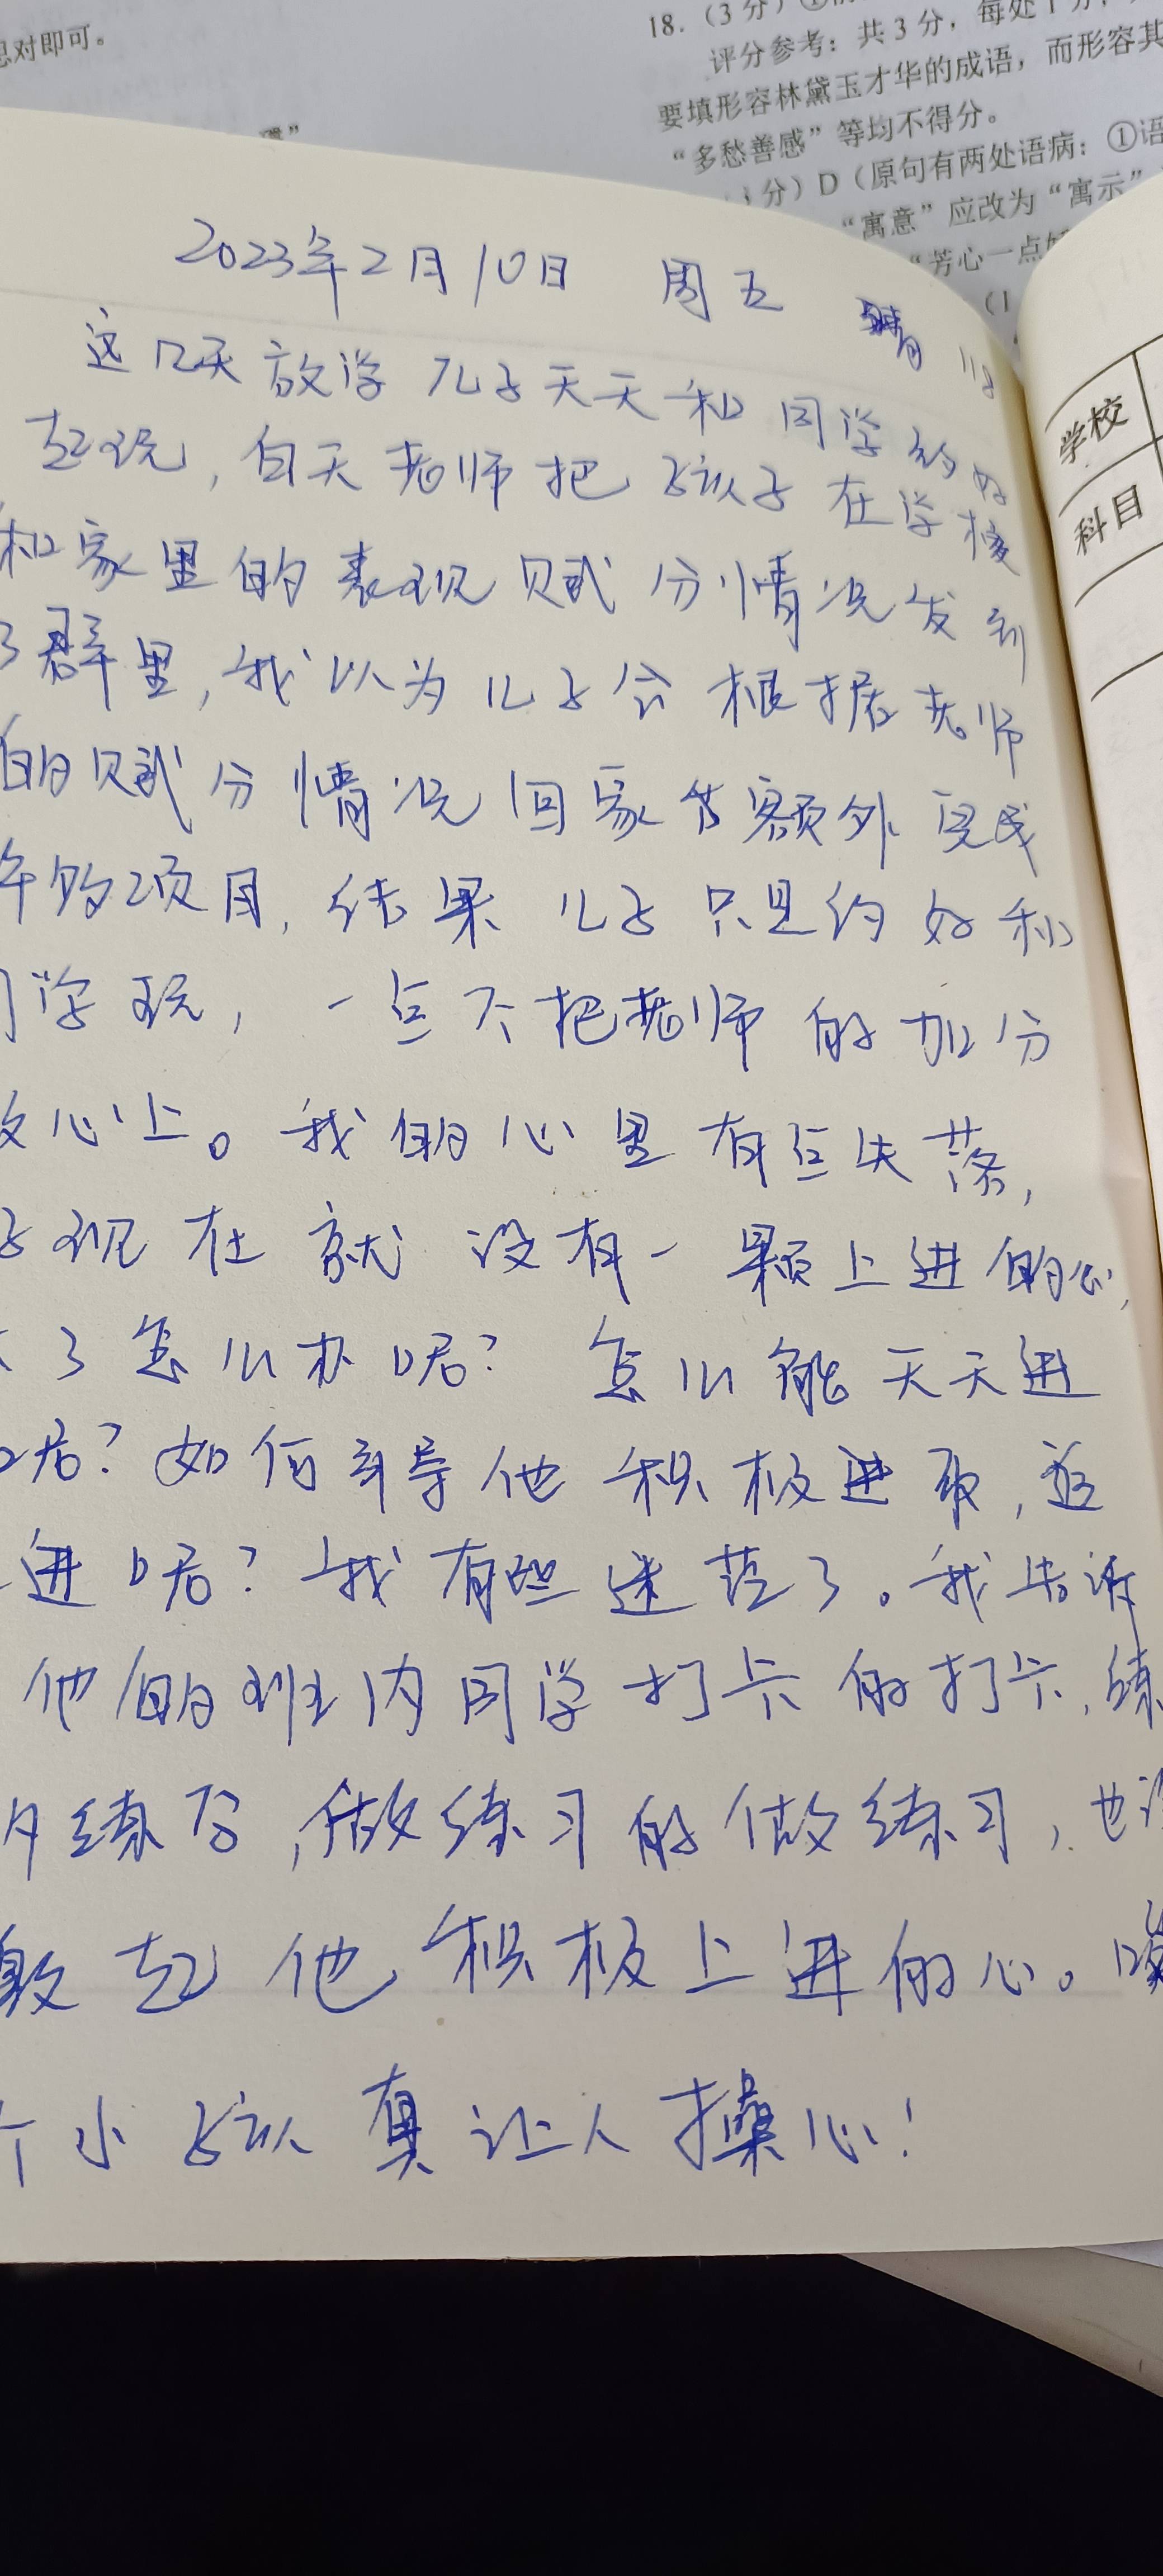 思对即可。
18.（3分）①
评分参考：共3分，每处1分，
要填形容林黛玉才华的成语，而形容其
“多愁善感”等均不得分。
分）D（原句有两处语病：①语
“寓意”应改为“寓示”
“芳心一点
（1
学校
科目
2023年2月10日 周五 晴
这几天放学儿子天天和同学约好
起玩，白天老师把孩子在学校
和家里的表现赋分情况发到
了群里，我以为儿子会根据老师
的赋分情况回家去额外完成
年的项目，结果儿子只是约好和
同学玩，一点不把老师的加分
放心上。我的心里有点失落，
子现在就没有一颗上进的心，
了怎么办呢？怎么能天天进
呢？如何引导他积极进取，追
进呢？我有些迷茫了。我告诉
他的班内同学打卡的打卡，练
练字，做练习的做练习，也没
激起他积极上进的心。唉
个小孩真让人操心！